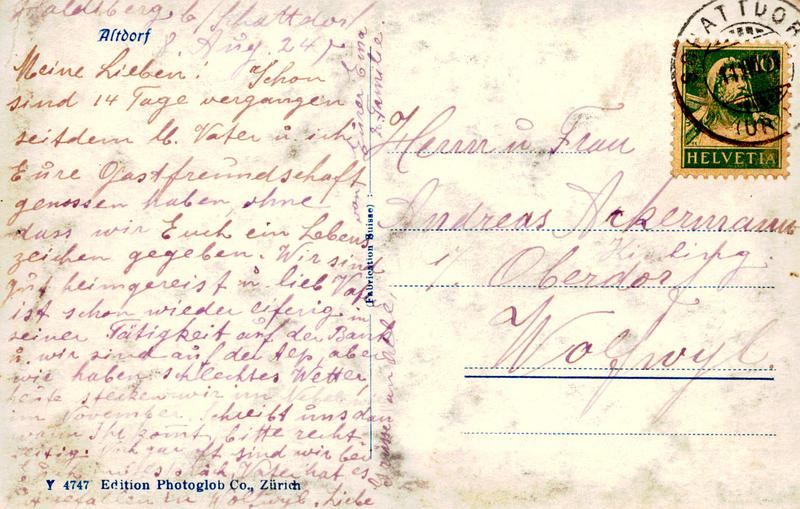 Haldsberg b/ Schattdorf
Altdorf
8. Aug. 24
Meine Lieben! Schon
sind 14 Tage vergangen
seitdem lb. Vater u. ich
Eure Gastfreundschaft
genossen haben, ohne
dass wir Euch ein Lebens
zeichen gegeben. Wir sind
gut heimgereist u. lieb Vater
ist schon wieder eiferig in
seiner Tätigkeit auf der Bank
u. wir sind auf der Alp, aber
wir haben schlechtes Wetter,
heute stecken wir im Nebel
im November. Schreibt uns dann
wann Ihr kommt, bitte recht-
zeitig. sind wir bei
Vater hat es
gefallen in Wolfwyl. Liebe
Grüsse an alle,
Eurer Ema
& Familie.
(Fabrication Suisse)
Y 4747 Edition Photoglob Co., Zürich
Herrn u Frau
Andreas Ackermann
i/ Oberdorf
Wolfwyl.
SCHATTDORF
10
HELVETIA